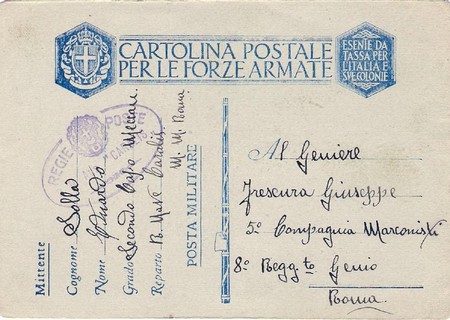 CARTOLINA POSTALE
PER LE FORZE ARMATE
ESENTE DA
TASSA PER
L'ITALIA E
SVE COLONIE
REGIE POSTE
Mittente
Cognome Solla
Nome Eduardo
Grado Secondo Capo Meccan.
Reparto R. Nave
M. M. Roma
POSTA MILITARE
Al Geniere
Frescura Giuseppe
5° Compagnia Marconisti
8° Regg.to Genio
Roma